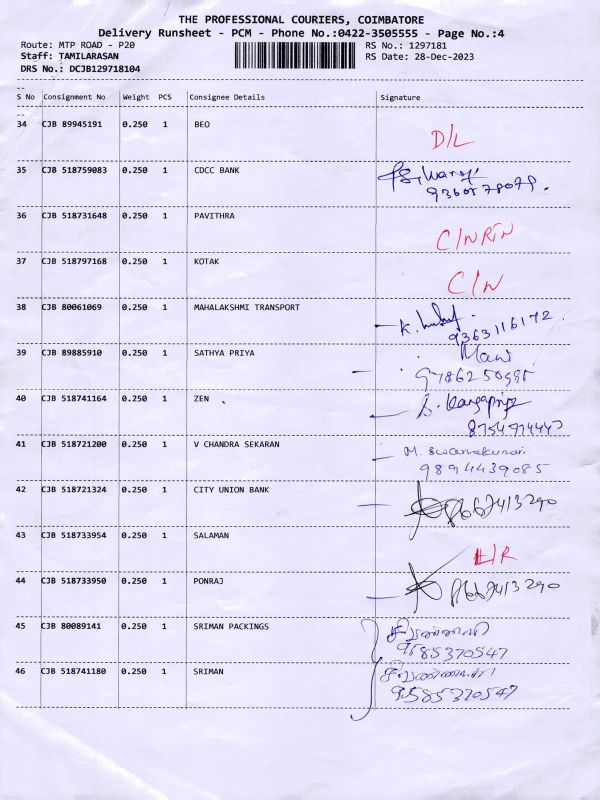 THE PROFESSIONAL COURIERS, COIMBATORE
Delivery Runsheet - PCM - Phone No.:0422-3505555 - Page No.:4
Route: MTP ROAD - P20
RS No.: 1297181
Staff: TAMILARASAN
RS Date: 28-Dec-2023
DRS No.: DCJB129718104
S No Consignment No Weight PCS Consignee Details Signature
34 CJB 89945191 0.250 1 BEO
D/L
35 CJB 518759083 0.250 1 CDCC BANK
36 CJB 518731648 0.250 1 PAVITHRA
C/NRTN
37 CJB 518797168 0.250 1 KOTAK
C/N
38 CJB 80061069 0.250 1 MAHALAKSHMI TRANSPORT
9363116172.
39 CJB 89885910 0.250 1 SATHYA PRIYA
Mani
40 CJB 518741164 0.250 1 ZEN
41 CJB 518721200 0.250 1 V CHANDRA SEKARAN
9894439085
42 CJB 518721324 0.250 1 CITY UNION BANK
43 CJB 518733954 0.250 1 SALAMAN
44 CJB 518733950 0.250 1 PONRAJ
45 CJB 80089141 0.250 1 SRIMAN PACKINGS
9585370547
46 CJB 518741180 0.250 1 SRIMAN
9585370547